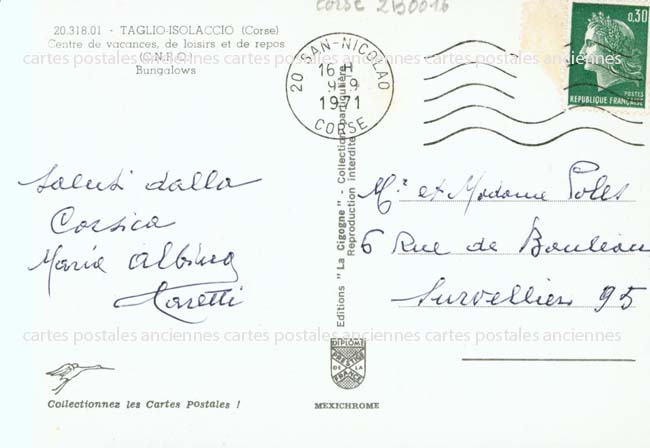 CORSE 2B0016
20.318.01 - TAGLIO-ISOLACCIO (Corse)
Centre de vacances, de loisirs et de repos
(C.N.R.O.)
Bungalows
20 SAN-NICOLAO
16 H
9-9
1971
CORSE
0,30
POSTES
REPUBLIQUE FRANÇAISE
cartes postales anciennes cartes postales anciennes cartes postales anciennes
Saluti dalla
Corsica
Maria Albina
Editions "La Cigogne" - Collection particulière
Reproduction interdite
Mr et Madame Poles
6 Rue de Bouleau
Survelliers 95
cartes postales anciennes cartes postales anciennes cartes postales anciennes
DIPLOME
PRESTIGE
DE LA
FRANCE
Collectionnez les Cartes Postales !
MEXICHROME